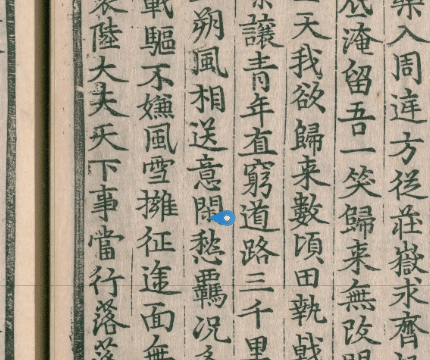 入周庭方從莊嶽求齊
淹留吾一笑歸来無改
天我欲歸来數頃田執戟
讓青年直窮道路三千里
朔風相送意閑愁羈况
驅不嫌風雪擁征途面無
陸大夫天下事當行落落